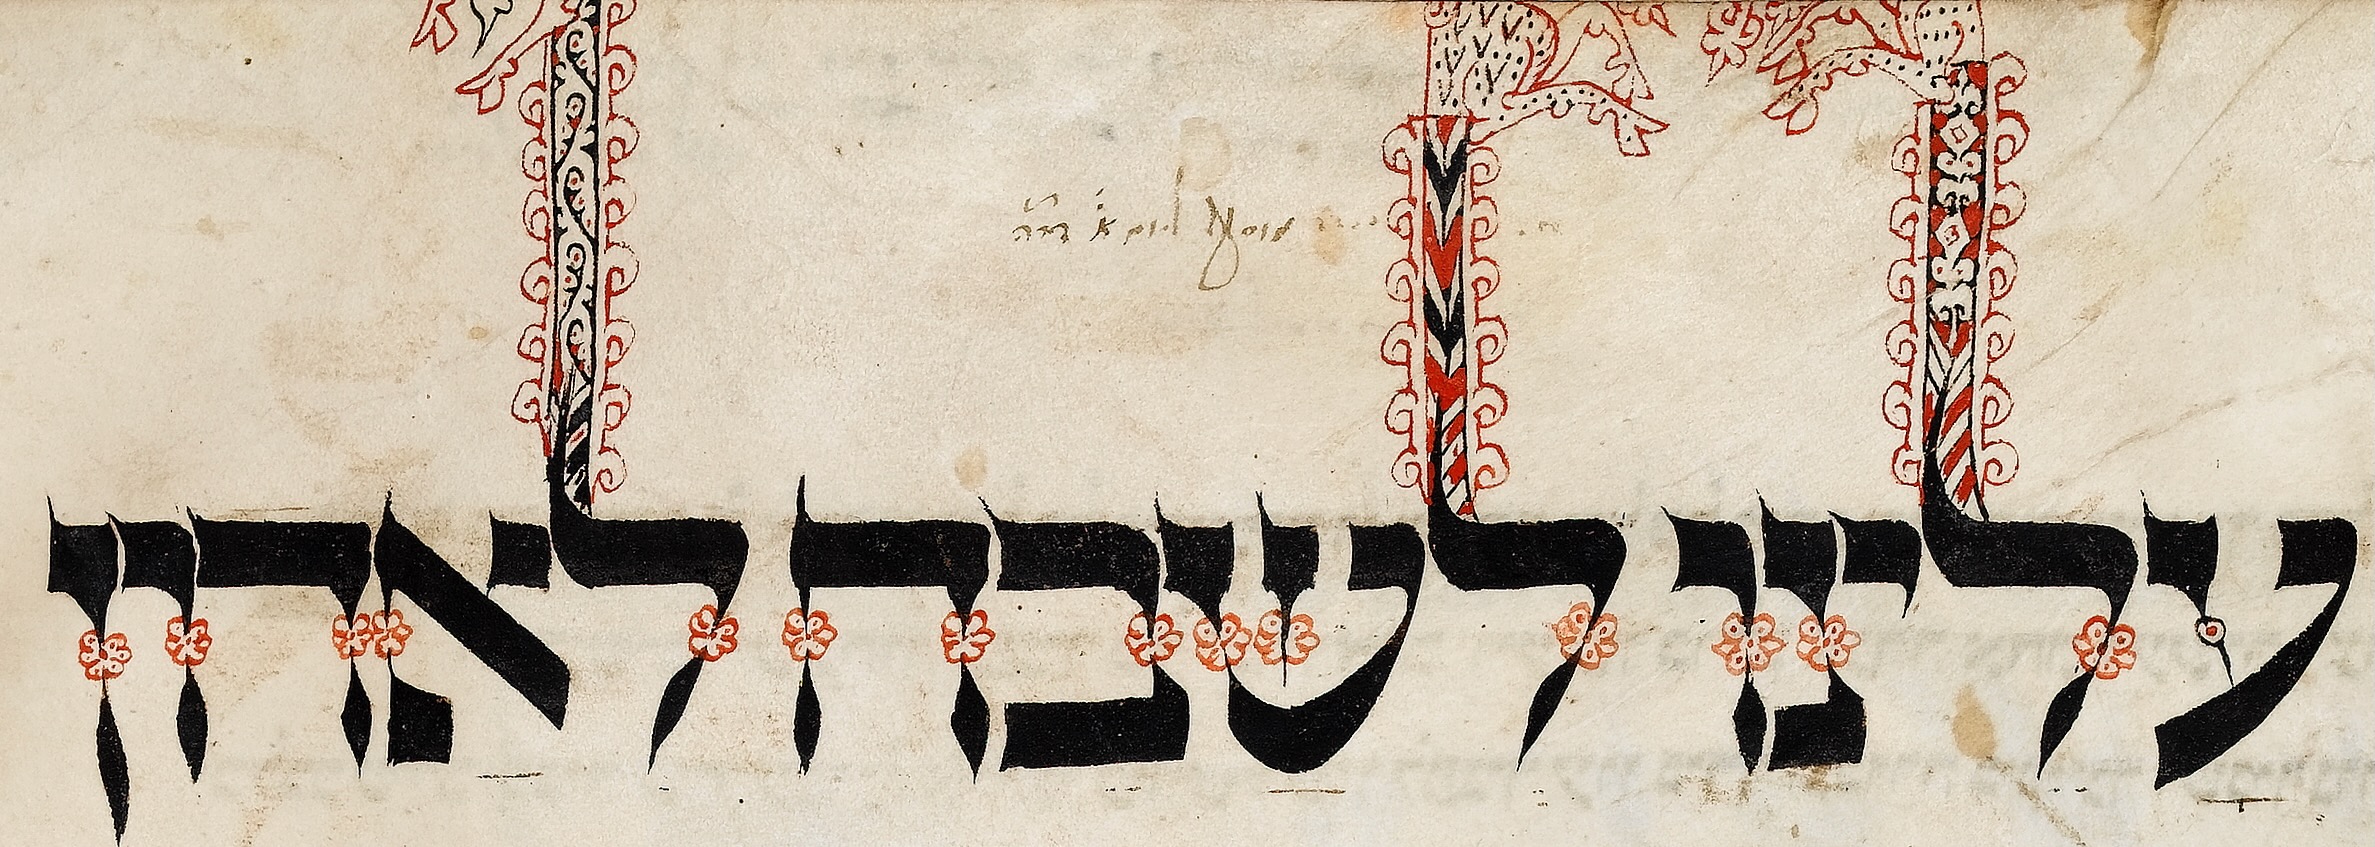 מוסף ליום א׳ דר״ה
עלינו לשבח לאדון